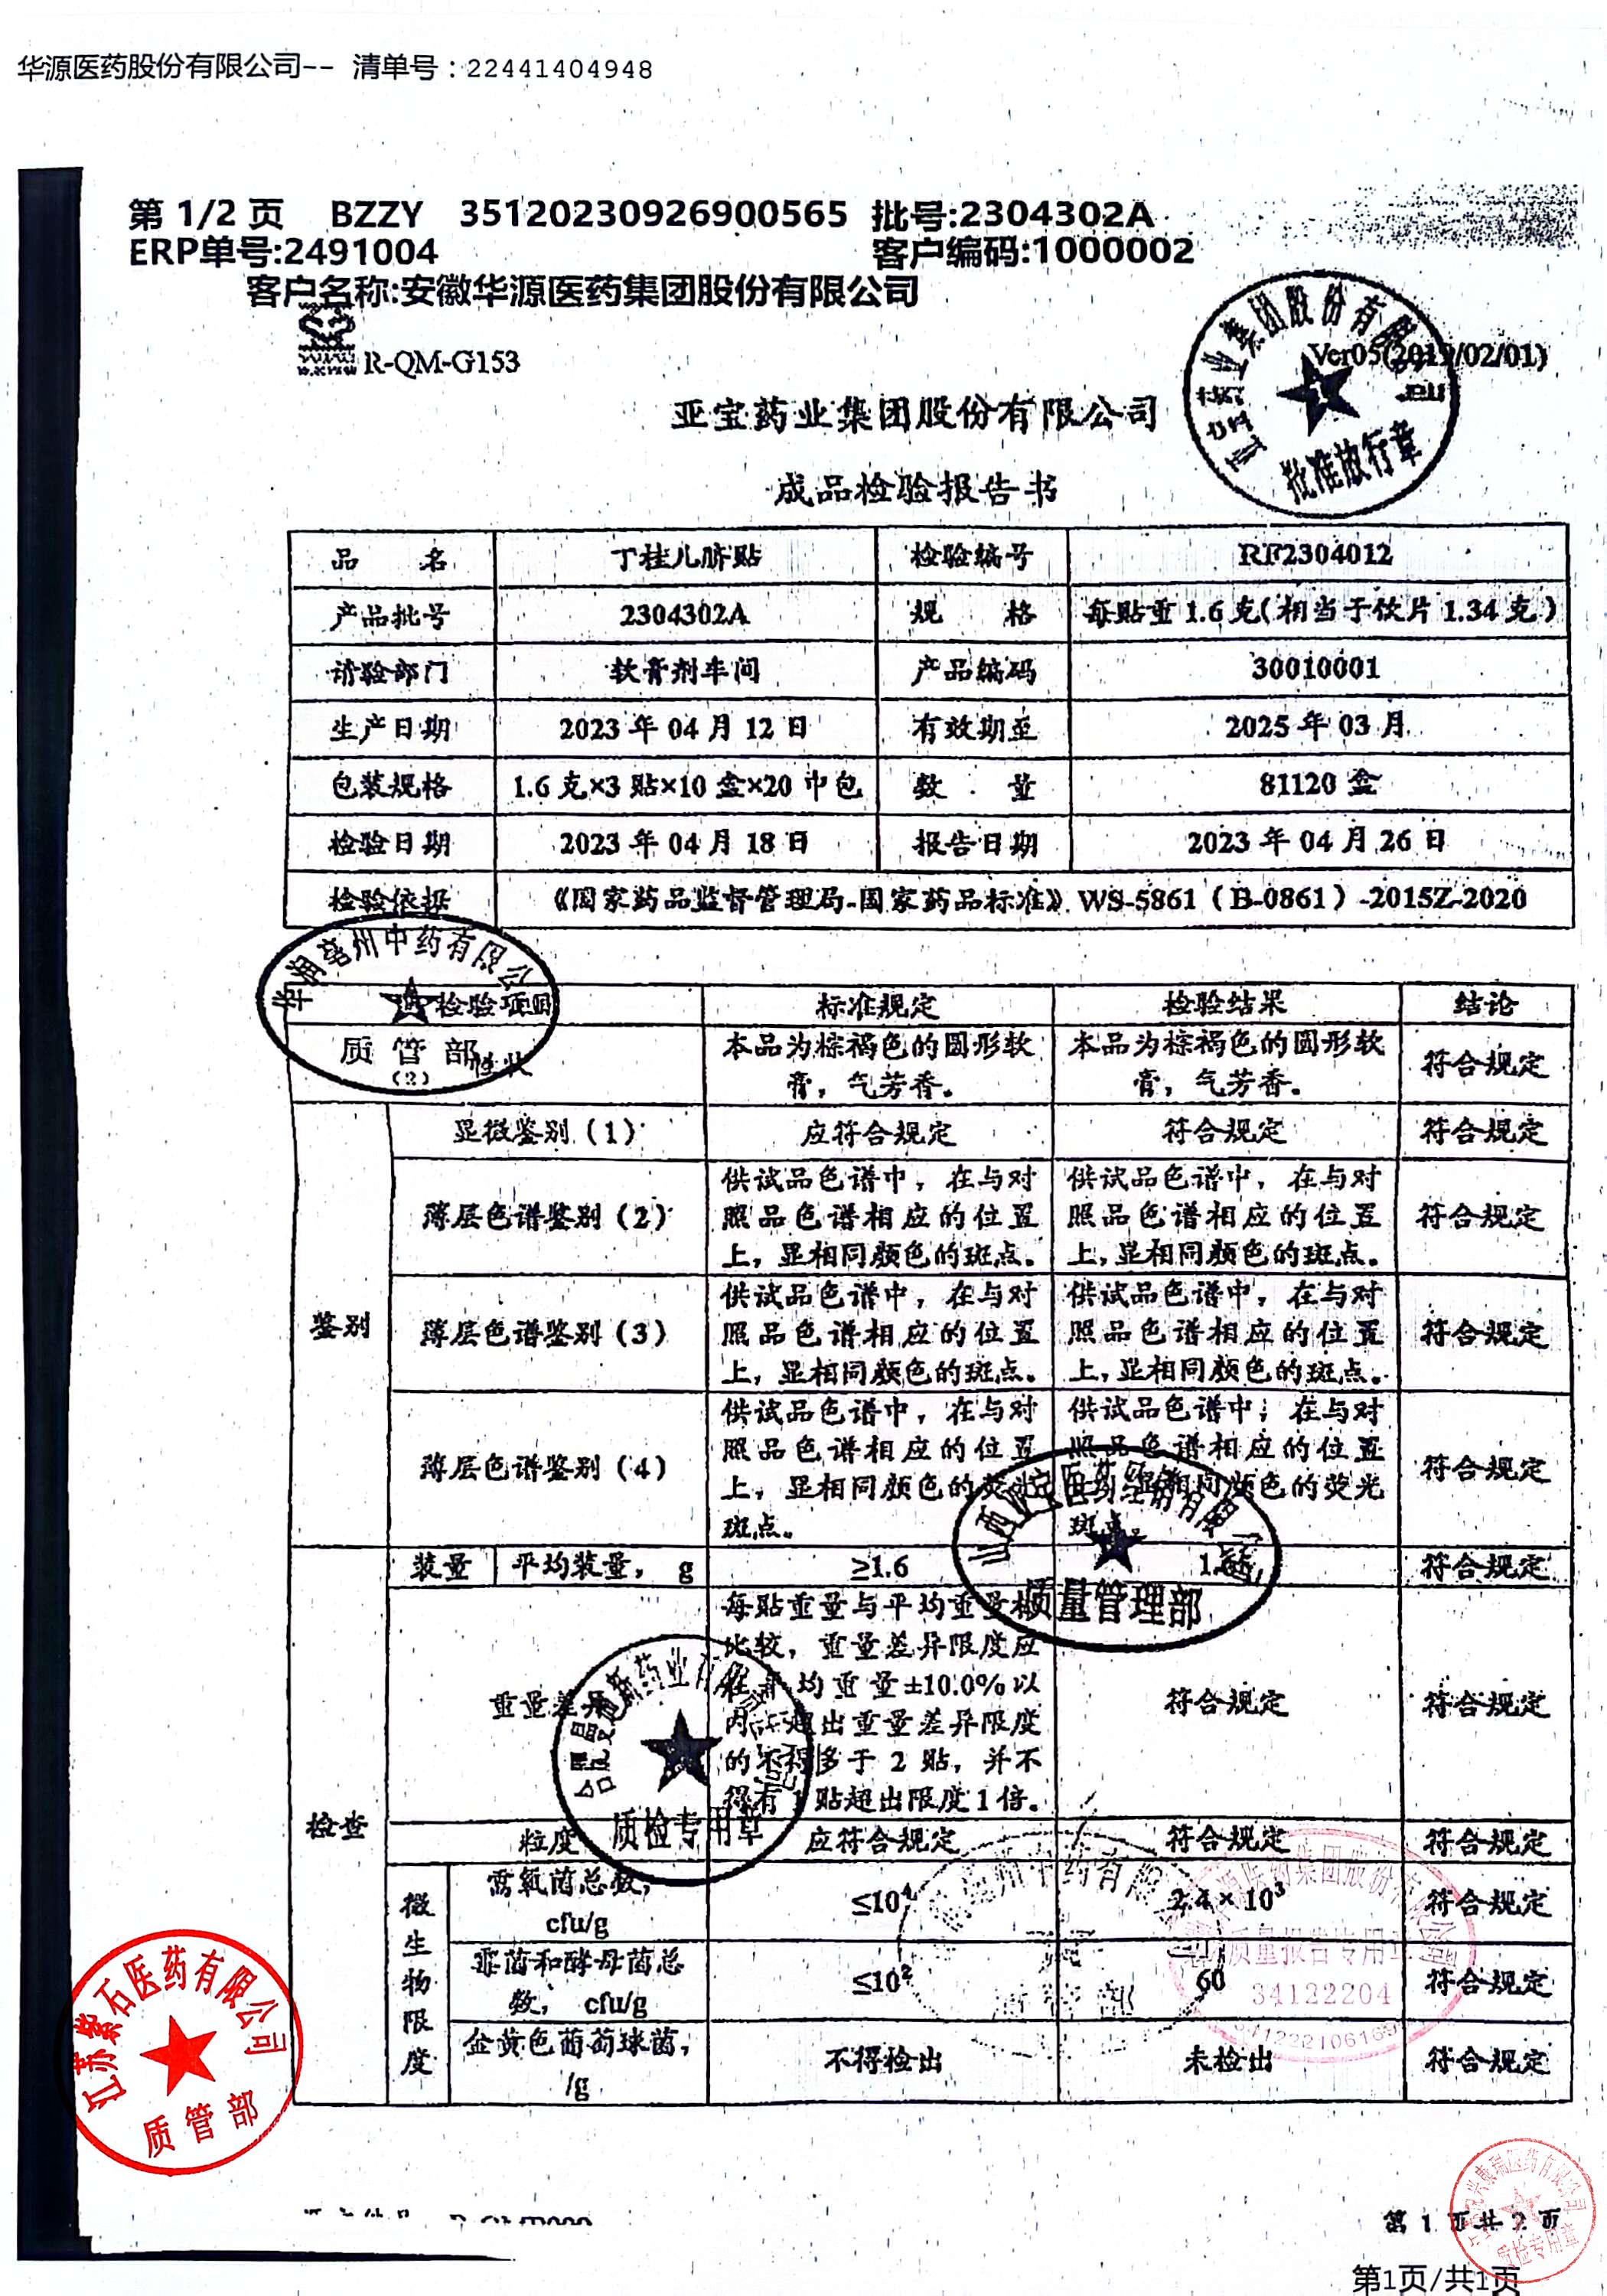 华源医药股份有限公司-- 清单号：22441404948
第 1/2 页 BZZY 35120230926900565 批号:2304302A
ERP单号:2491004 客户编码:1000002
客户名称:安徽华源医药集团股份有限公司
R-QM-G153 Ver05(2019/02/01)
亚宝药业集团股份有限公司
批准放行章
成品检验报告书
品 名 丁桂儿脐贴 检验编号 RF2304012
产品批号 2304302A 规 格 每贴重 1.6 克(相当于饮片 1.34 克)
请验部门 软膏剂车间 产品编码 30010001
生产日期 2023 年 04 月 12 日 有效期至 2025 年 03 月
包装规格 1.6 克×3 贴×10 盒×20 中包 数 量 81120 盒
检验日期 2023 年 04 月 18 日 报告日期 2023 年 04 月 26 日
检验依据 《国家药品监督管理局-国家药品标准》WS-5861（B-0861）-2015Z-2020
华润亳州中药有限公司
质管部
(2)
检验项目 标准规定 检验结果 结论
性状 本品为棕褐色的圆形软 本品为棕褐色的圆形软 符合规定
膏，气芳香。 膏，气芳香。
鉴别
显微鉴别（1） 应符合规定 符合规定 符合规定
薄层色谱鉴别（2） 供试品色谱中，在与对 供试品色谱中，在与对 符合规定
照品色谱相应的位置 照品色谱相应的位置
上，显相同颜色的斑点。 上，显相同颜色的斑点。
薄层色谱鉴别（3） 供试品色谱中，在与对 供试品色谱中，在与对 符合规定
照品色谱相应的位置 照品色谱相应的位置
上，显相同颜色的斑点。 上，显相同颜色的斑点。
薄层色谱鉴别（4） 供试品色谱中，在与对 供试品色谱中，在与对 符合规定
照品色谱相应的位置 照品色谱相应的位置
上，显相同颜色的荧光 显相同颜色的荧光
斑点。 斑
质量管理部
检查
装量 平均装量， g ≥1.6 符合规定
重量差异 每贴重量与平均重量相 符合规定 符合规定
比较，重量差异限度应
均重量±10.0%以
内 超出重量差异限度
的不得多于 2 贴，并不
得有 1 贴超出限度 1 倍。
质检专用章
粒度 应符合规定 符合规定 符合规定
微生物限度
需氧菌总数， cfu/g ≤10⁴ 2.4×10³ 符合规定
霉菌和酵母菌总数， cfu/g ≤10² 60 符合规定
金黄色葡萄球菌， /g 不得检出 未检出 符合规定
质量报告专用章
34122204
江苏紫石医药有限公司
质管部
质检专用章
第 1 页共 2 页
第1页/共1页